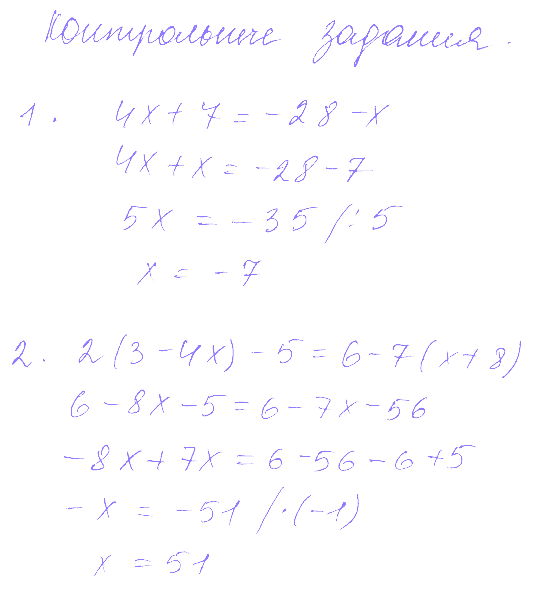 Контрольные задания.
1. 4x + 7 = -28 - x
4x + x = -28 - 7
5x = -35 /: 5
x = -7
2. 2(3 - 4x) - 5 = 6 - 7(x + 8)
6 - 8x - 5 = 6 - 7x - 56
-8x + 7x = 6 - 56 - 6 + 5
-x = -51 /·(-1)
x = 51